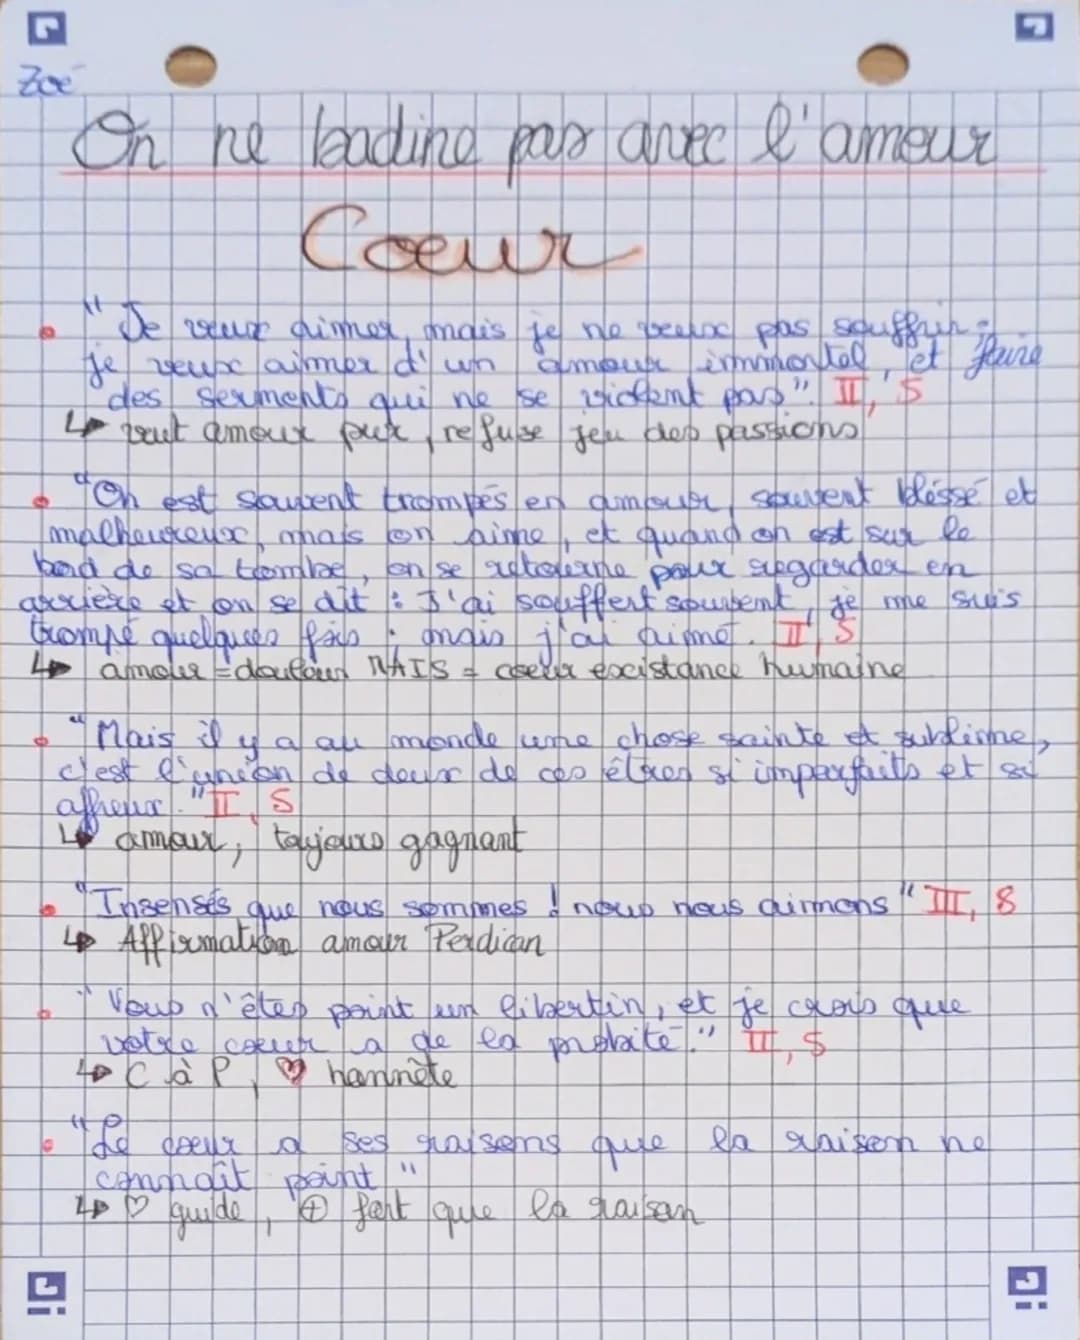 Zoé
On ne badine pas avec l'amour
Coeur
• "Je veux aimer, mais je ne veux pas souffrir ;
je veux aimer d'un amour immortel, et faire
des serments qui ne se violent pas". II, 5
↳ veut amour pur, refuse jeu des passions
• "On est souvent trompés en amour, souvent blessé et
malheureux, mais on aime, et quand on est sur le
bord de sa tombe, on se retourne pour regarder en
arrière et on se dit : J'ai souffert souvent, je me suis
trompé quelques fois : mais j'ai aimé. II, 5
↳ amour = douleur MAIS = coeur existance humaine
• "Mais il y a au monde une chose sainte et sublime,
c'est l'union de deux de ces êtres si imparfaits et si
affreux." II, 5
↳ amour, toujours gagnant
• "Insensés que nous sommes ! nous nous aimons" III, 8
↳ Affirmation amour Perdican
• "Vous n'êtes point un libertin, et je crois que
votre coeur a de la probité." II, 5
↳ C à P, ♡ honnête
• "Le coeur a ses raisons que la raison ne
connaît point"
↳ ♡ guide, ⊕ fort que la raison